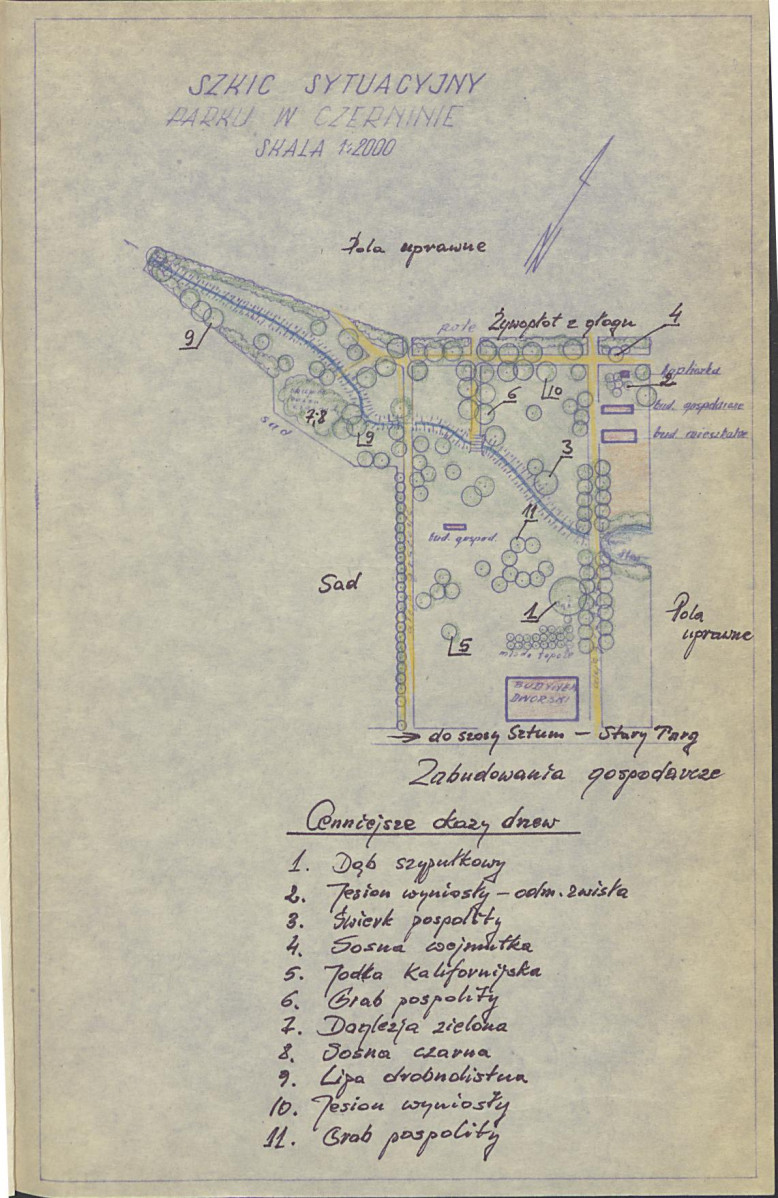 SZKIC SYTUACYJNY
PARKU W CZERNINIE
SKALA 1:2000
N
Pola uprawne
pole
Żywopłot z głogu
4
9
kapliczka
2
6
10
bud. gospodarcze
7,8
sad
9
bud. mieszkalne
3
11
bud. gospod.
staw
Sad
1
Pola
uprawne
5
młode topole
BUDYNEK
DWORSKI
→ do szosy Sztum – Stary Targ
Zabudowania gospodarcze
Cenniejsze okazy drzew
1. Dąb szypułkowy
2. Jesion wyniosły – odm. zwisła
3. Świerk pospolity
4. Sosna wejmutka
5. Jodła Kalifornijska
6. Grab pospolity
7. Daglezja zielona
8. Sosna czarna
9. Lipa drobnolistna
10. Jesion wyniosły
11. Grab pospolity